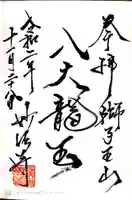 奉拝
獅子王山
八大龍王
令和二年
十一月二十八日
妙法寺